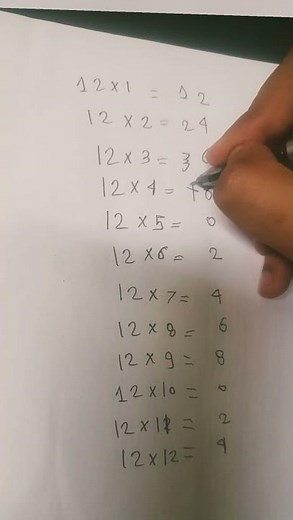 12 x 1 = 12
12 x 2 = 24
12 x 3 = 36
12 x 4 = 48
12 x 5 = 0
12 x 6 = 2
12 x 7 = 4
12 x 8 = 6
12 x 9 = 8
12 x 10 = 0
12 x 11 = 2
12 x 12 = 4